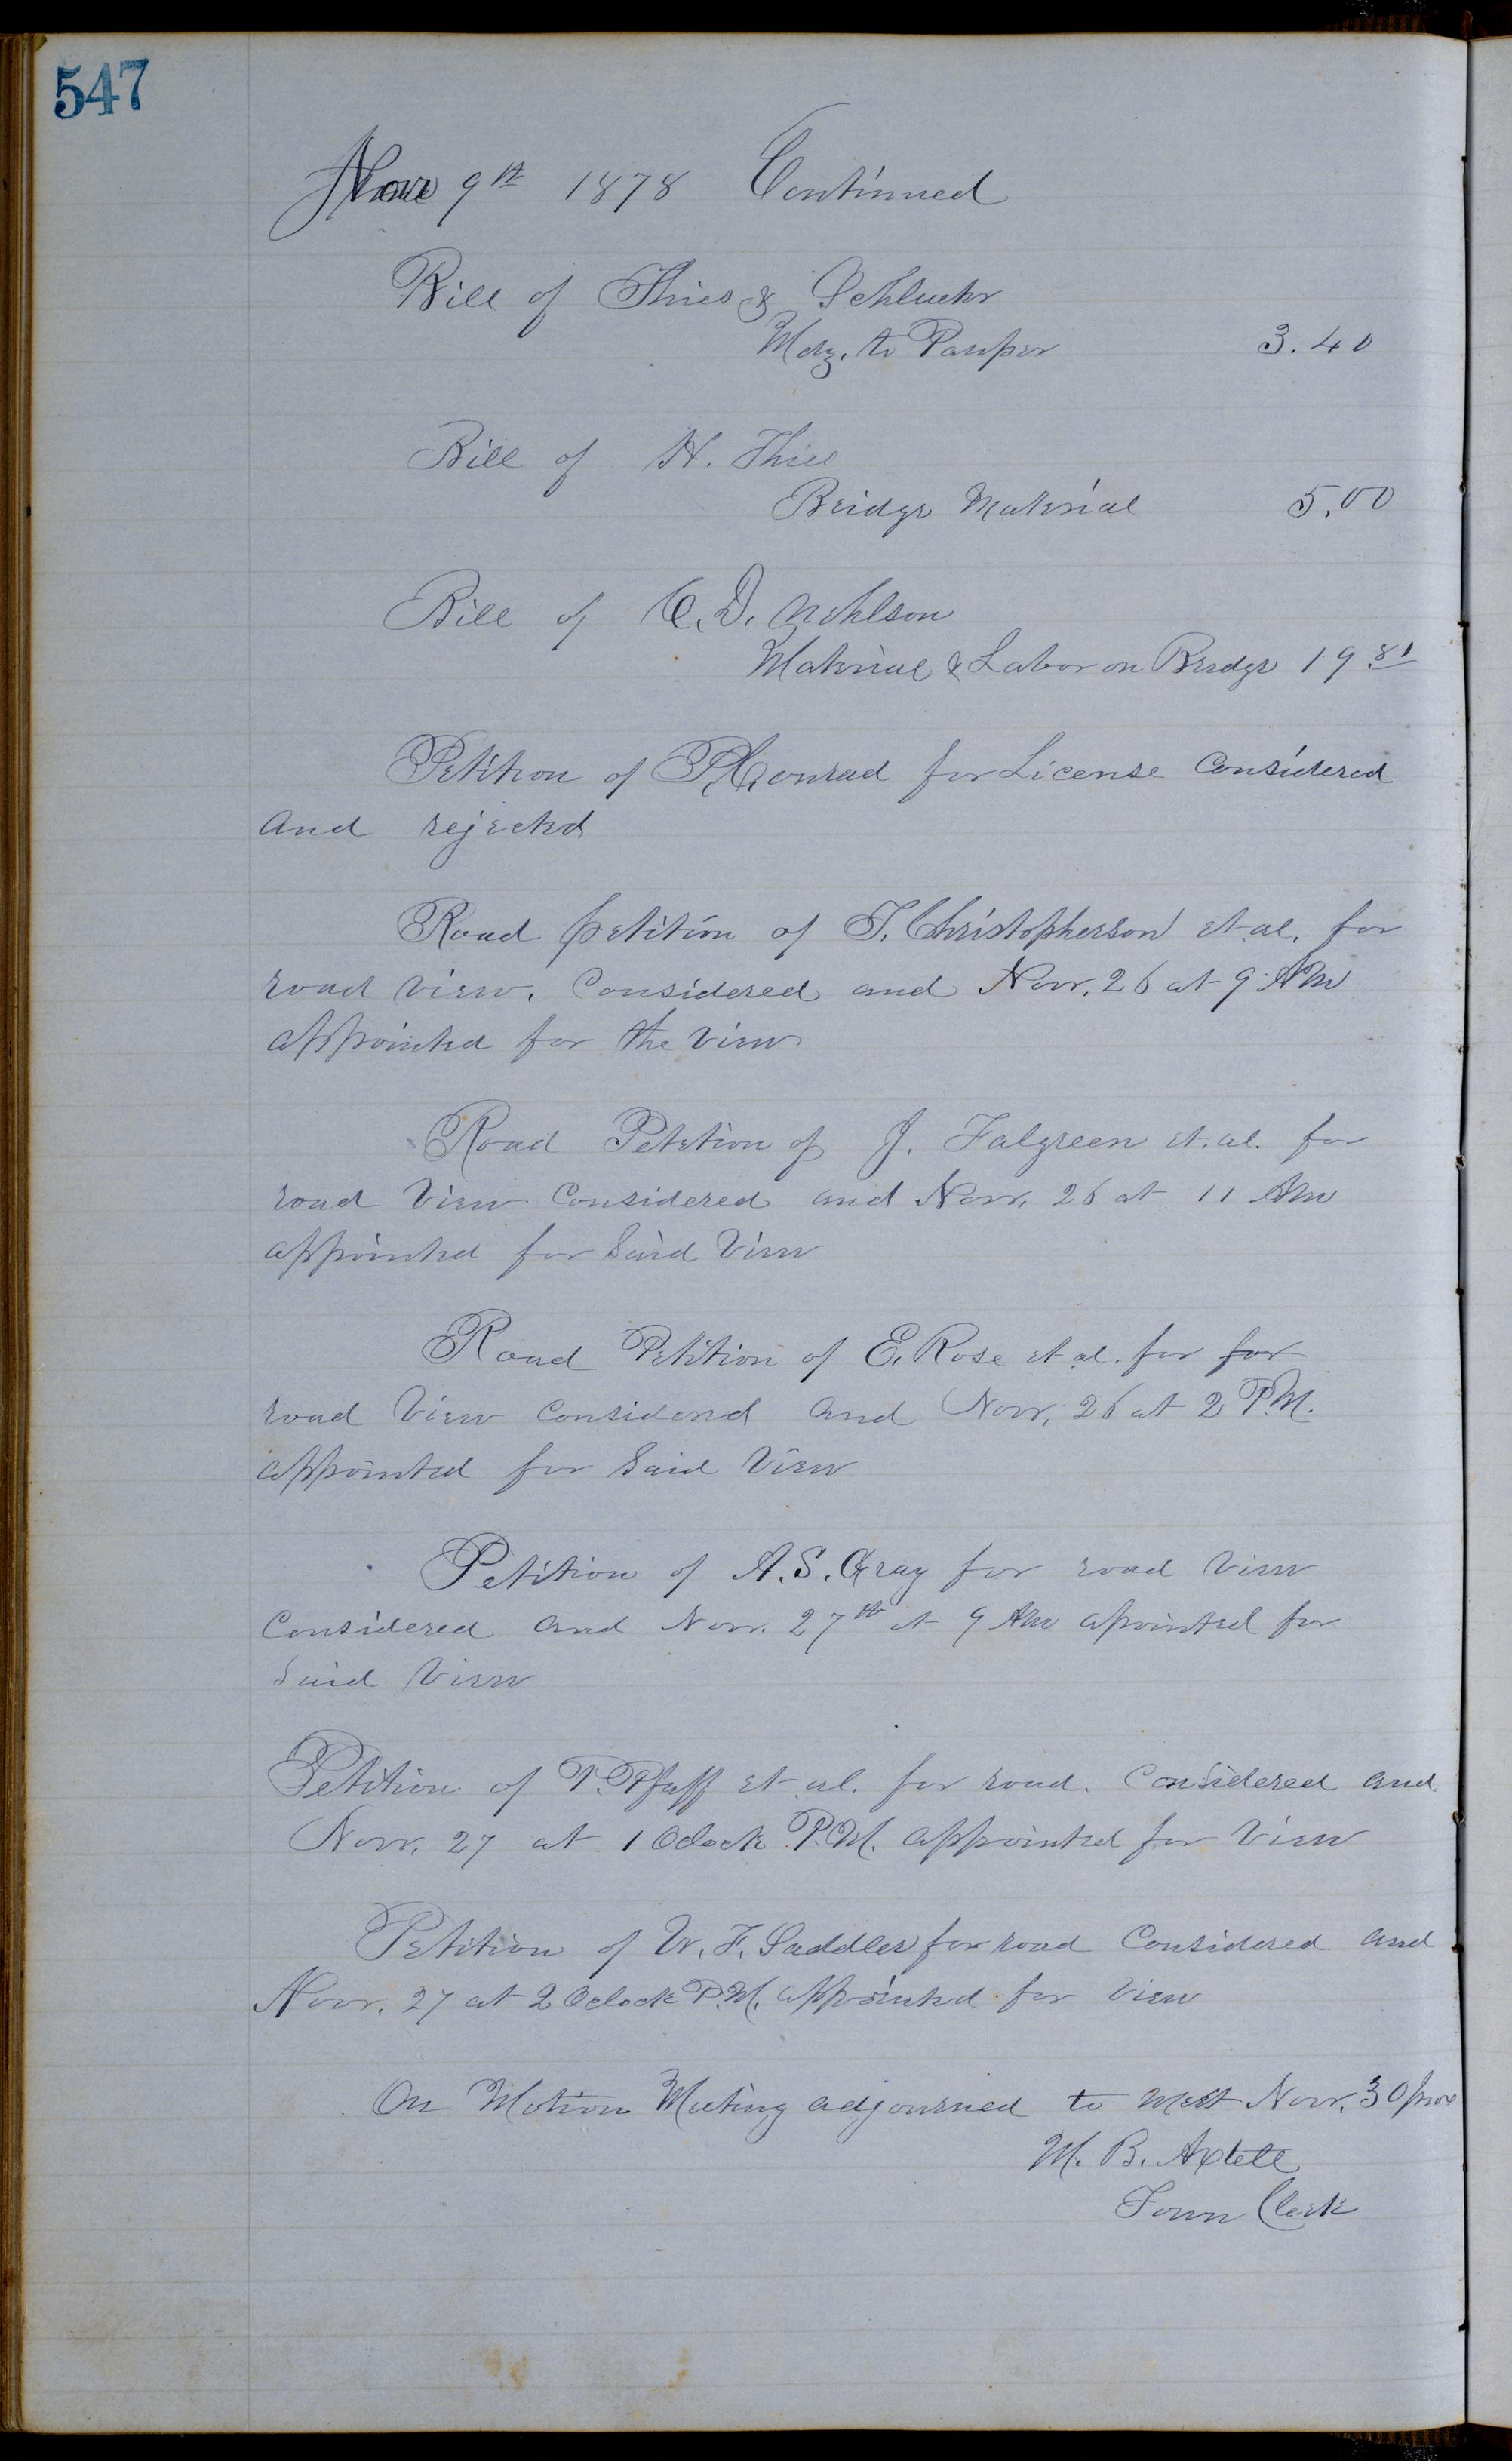 547
Nov 9th 1878 Continued
Bill of Thies & Schluter
Mdz. to Pauper 3.40
Bill of H. Thies
Bridge Material 5,00
Bill of C. D.
Material & Labor on Bridge 19.81
Petition of P Conrad for License Considered
and rejected
Road petition of T. Christopherson et al. for
road view. Considered and Nov. 26 at 9 AM
appointed for the View
Road Petetion of J. Falgreen et. al. for
road View Considered and Nov. 26 at 11 AM
appointed for Said View
Road Petition of E. Rose et al. for for
road View Considered and Nov. 26 at 2 P.M.
appointed for Said View
Petition of A. S. Gray for road View
Considered and Nov. 27th at 9 AM apointed for
Said View
Petition of P. Pfaff et al. for road. Considered and
Nov. 27 at 1 Oclock P.M. appointed for View
Petition of W. F. Saddler for road Considered and
Nov. 27 at 2 Oclock P.M. appointed for View
On Motion Meeting adjourned to meet Nov. 30 prox
M. B. Axtell
Town Clerk